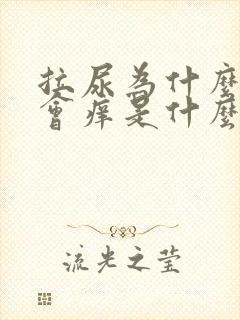 拉尿為什麼
會痒是什麼
流光之莹